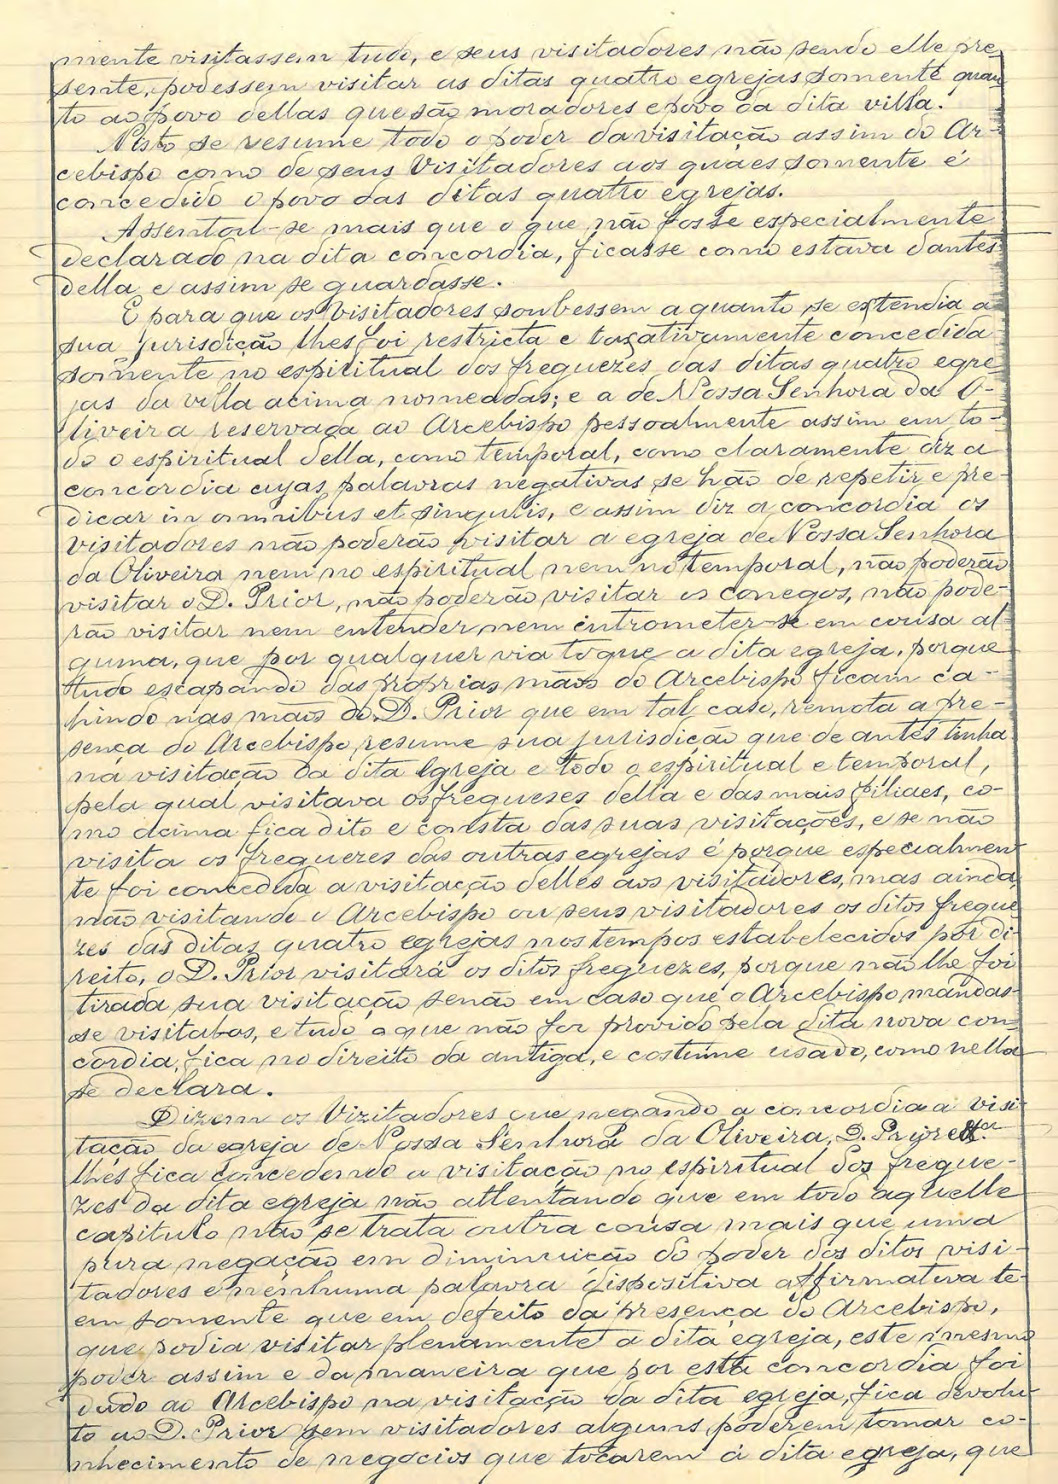 mente visitassem tudo, e seus visitadores não sendo elle pre-
sente, podessem visitar as ditas quatro egrejas somente quan-
to ao povo dellas que são moradores e povo da dita villa.
Nisto se resume todo o poder da visitação assim do Ar-
cebispo como de seus Visitadores aos quaes somente é
concedido o povo das ditas quatro egrejas.
Assentou-se mais que o que não fosse especialmente
declarado na dita concordia, ficasse como estava dantes
della e assim se guardasse.
E para que os Visitadores soubessem a quanto se extendia a
sua jurisdição lhes foi restricta e taxativamente concedida
somente no espiritual dos freguezes das ditas quatro egre-
jas da villa acima nomeadas; e a de Nossa Senhora da O-
liveira reservada ao Arcebispo pessoalmente assim em to-
do o espiritual della, como temporal, como claramente diz a
concordia cujas palavras negativas se hão de repetir e pre-
dicar in omnibus et singulis, e assim diz a concordia os
visitadores não poderão visitar a egreja de Nossa Senhora
da Oliveira nem no espiritual nem no temporal, não poderão
visitar o D. Prior, não poderão visitar os conegos, não pode-
rão visitar nem entender nem intrometer-se em cousa al-
guma, que por qualquer via toque a dita egreja, porque
tudo escapando das proprias mãos do Arcebispo ficam ca-
hindo nas mãos do D. Prior que em tal caso, remota a pre-
sença do Arcebispo, resume sua jurisdição que de antes tinha
na visitação da dita Egreja e todo o espiritual e temporal,
pela qual visitava os freguezes della e das mais filiaes, co-
mo acima fica dito e consta das suas visitações, e se não
visita os freguezes das outras egrejas é porque especialmen-
te foi concedida a visitação delles aos visitadores, mas ainda
não visitando o Arcebispo ou seus visitadores os ditos fregue-
zes das ditas quatro egrejas nos tempos estabelecidos por di-
reito, o D. Prior visitará os ditos freguezes, porque não lhe foi
tirada sua visitação senão em caso que o Arcebispo mandas-
se visitalos, e tudo o que não for provido pela dita nova con-
cordia, fica no direito da antiga, e costume usado, como nella
se declara.
Dizem os Vizitadores que negando a concordia a visi-
tação da egreja de Nossa Senhora da Oliveira, D. Prior etc.ª
lhes fica concedendo a visitação no espiritual dos fregue-
zes da dita egreja não attentando que em todo aquelle
capitulo não se trata outra cousa mais que uma
pura negação em diminuição do poder dos ditos visi-
tadores e nenhuma palavra dispositiva affirmativa te-
em somente que em defeito da presença do Arcebispo,
que podia visitar plenamente a dita egreja, este mesmo
poder assim e da maneira que por esta concordia foi
dado ao Arcebispo na visitação da dita egreja, fica devolu-
to ao D. Prior sem visitadores alguns poderem tomar co-
nhecimento de negocios que tocarem á dita egreja, que